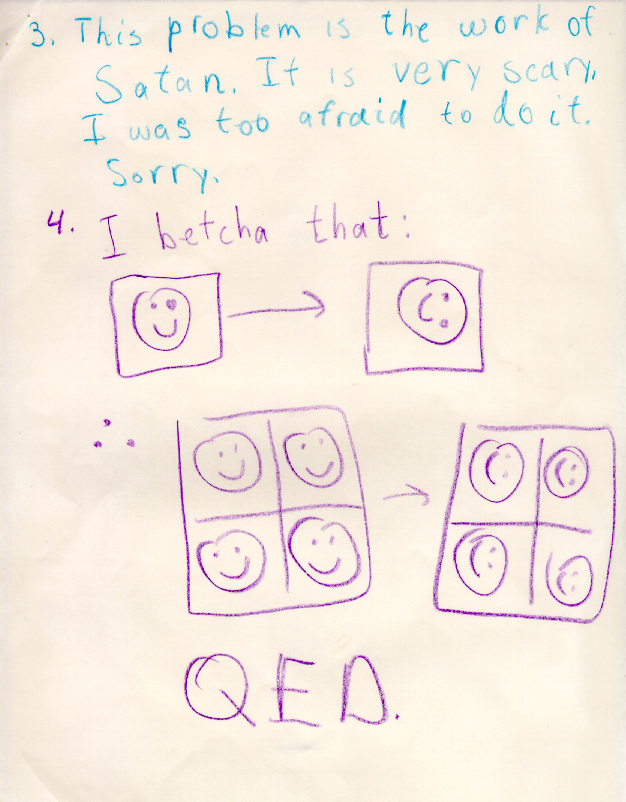 3. This problem is the work of
Satan. It is very scary.
I was too afraid to do it.
Sorry.
4. I betcha that:
∴
QED.